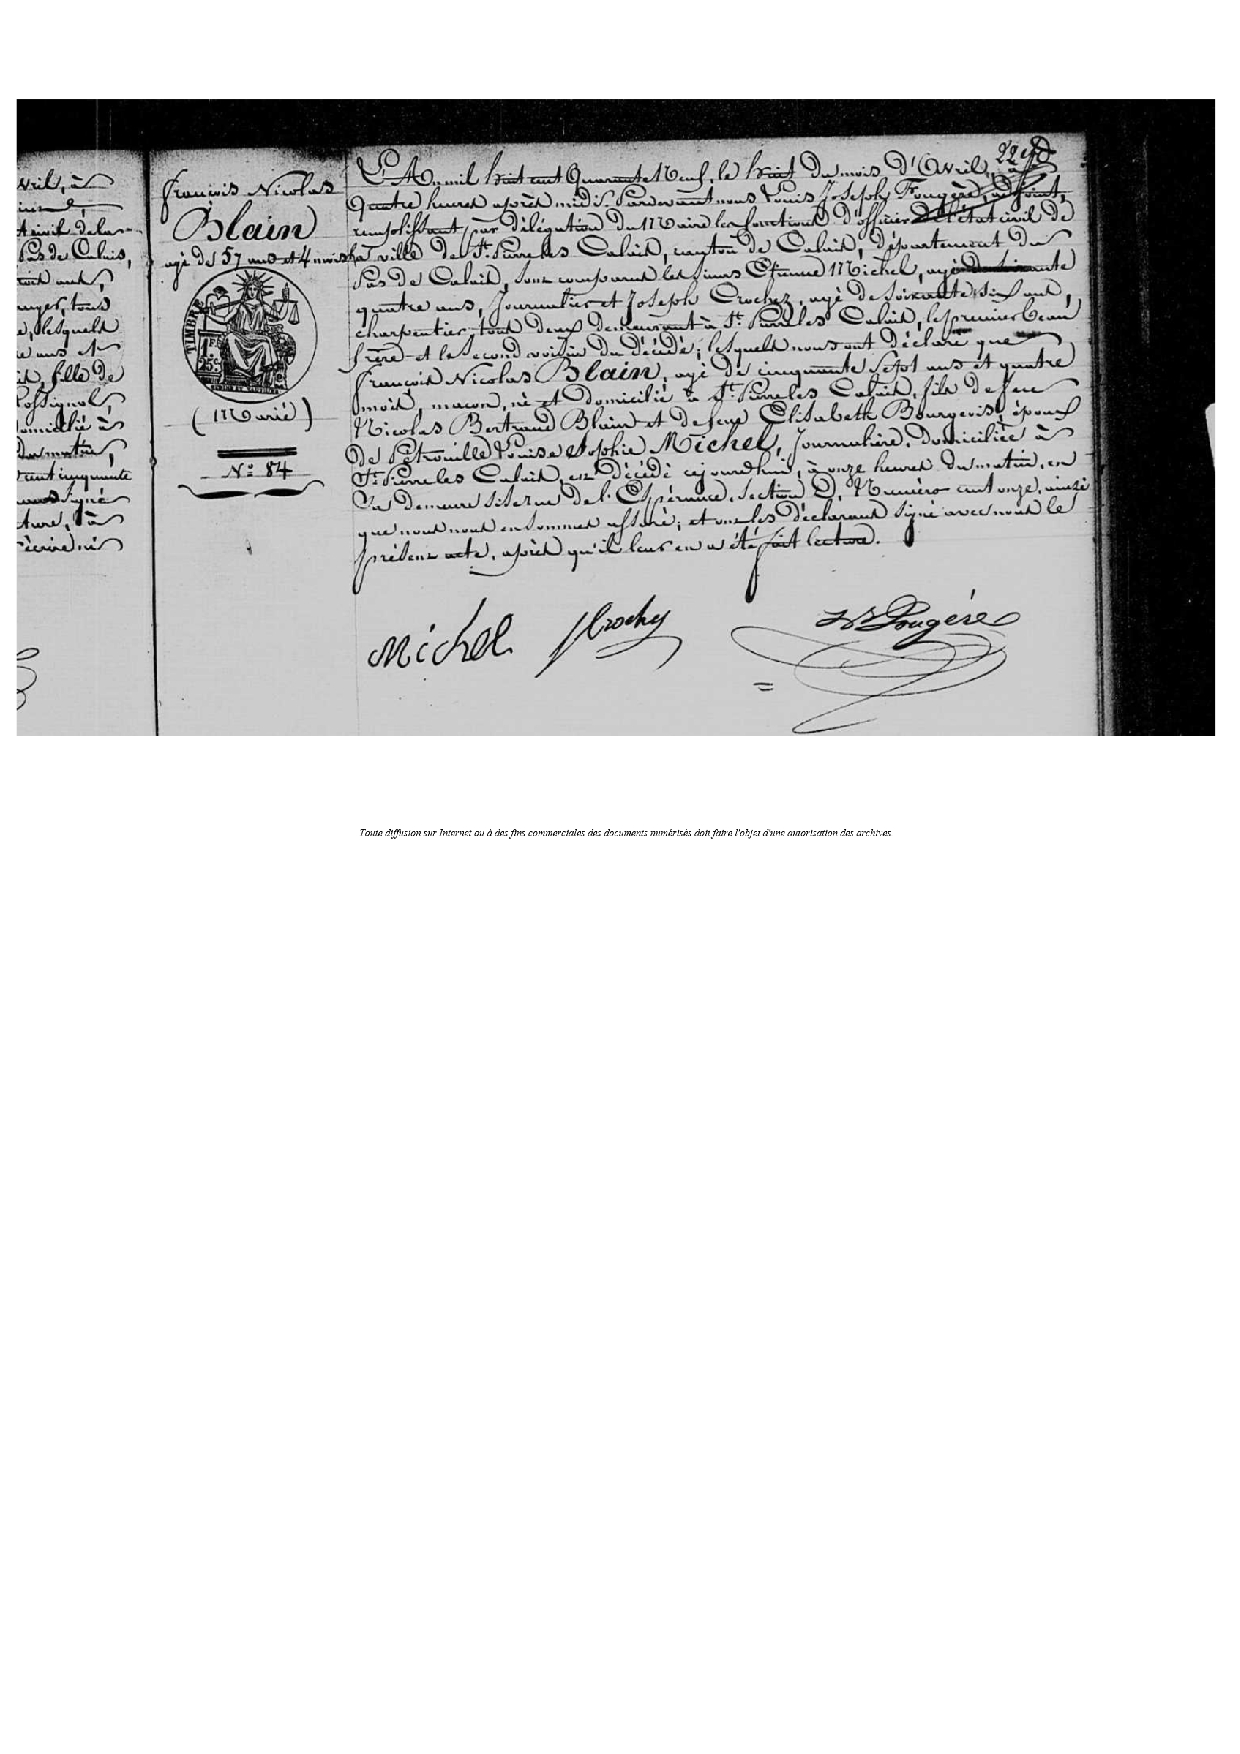 vril, à
état civil de la
Pas de Calais,
tous
lesquels
fille de
Rossignol
domicilié à
du matin,
cent cinquante
signé
lecture, à
écrire ni
François Nicolas
Blain
agé de 57 ans et 4 mois
TIMBRE
1F
25c
(Marié)
N° 84
L'An mil huit cent Quarante Neuf, le huit du mois d'Avril, à
Quatre heures après midi, Pardevant nous Louis Joseph Fougère, adjoint,
remplissant par délégation du Maire les fonctions d'officier de l'état civil de
la ville de St. Pierre les Calais, canton de Calais, Département du
Pas de Calais, sont comparus les sieurs Etienne Michel, agé de soixante
quatre ans, Journalier et Joseph Crochez, agé de soixante six ans,
charpentier tous deux demeurant à St. Pierre les Calais, le premier beau
frère et le second voisin du décédé; lesquels nous ont déclaré que
François Nicolas Blain, agé de cinquante sept ans et quatre
mois, maçon, né et domicilié à St. Pierre les Calais, fils de feu
Nicolas Bertrand Blain et de feue Elisabeth Bourgeois, époux
de Pétronille Louise Sophie Michel, Journalière, Domiciliée à
St. Pierre les Calais, est décédé cejourd'hui, à onze heures du matin, en
sa demeure sise rue de l'Espérance, section D, Numéro cent onze, ainsi
que nous nous en sommes assuré; et ont les déclarans signé avec nous le
présent acte, après qu'il leur en a été fait lecture.
Michel JCrochez Fougère
Toute diffusion sur Internet ou à des fins commerciales des documents numérisés doit faire l'objet d'une autorisation des archives